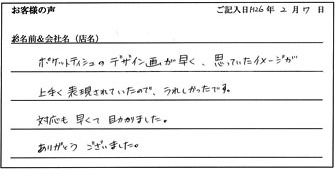 お客様の声 ご記入日 H26 年 2 月 17 日
お名前&会社名（店名）
ポケットティシュのデザイン画が早く、思っていたイメージが
上手く表現されていたので、うれしかったです。
対応も早くて助かりました。
ありがとうございました。